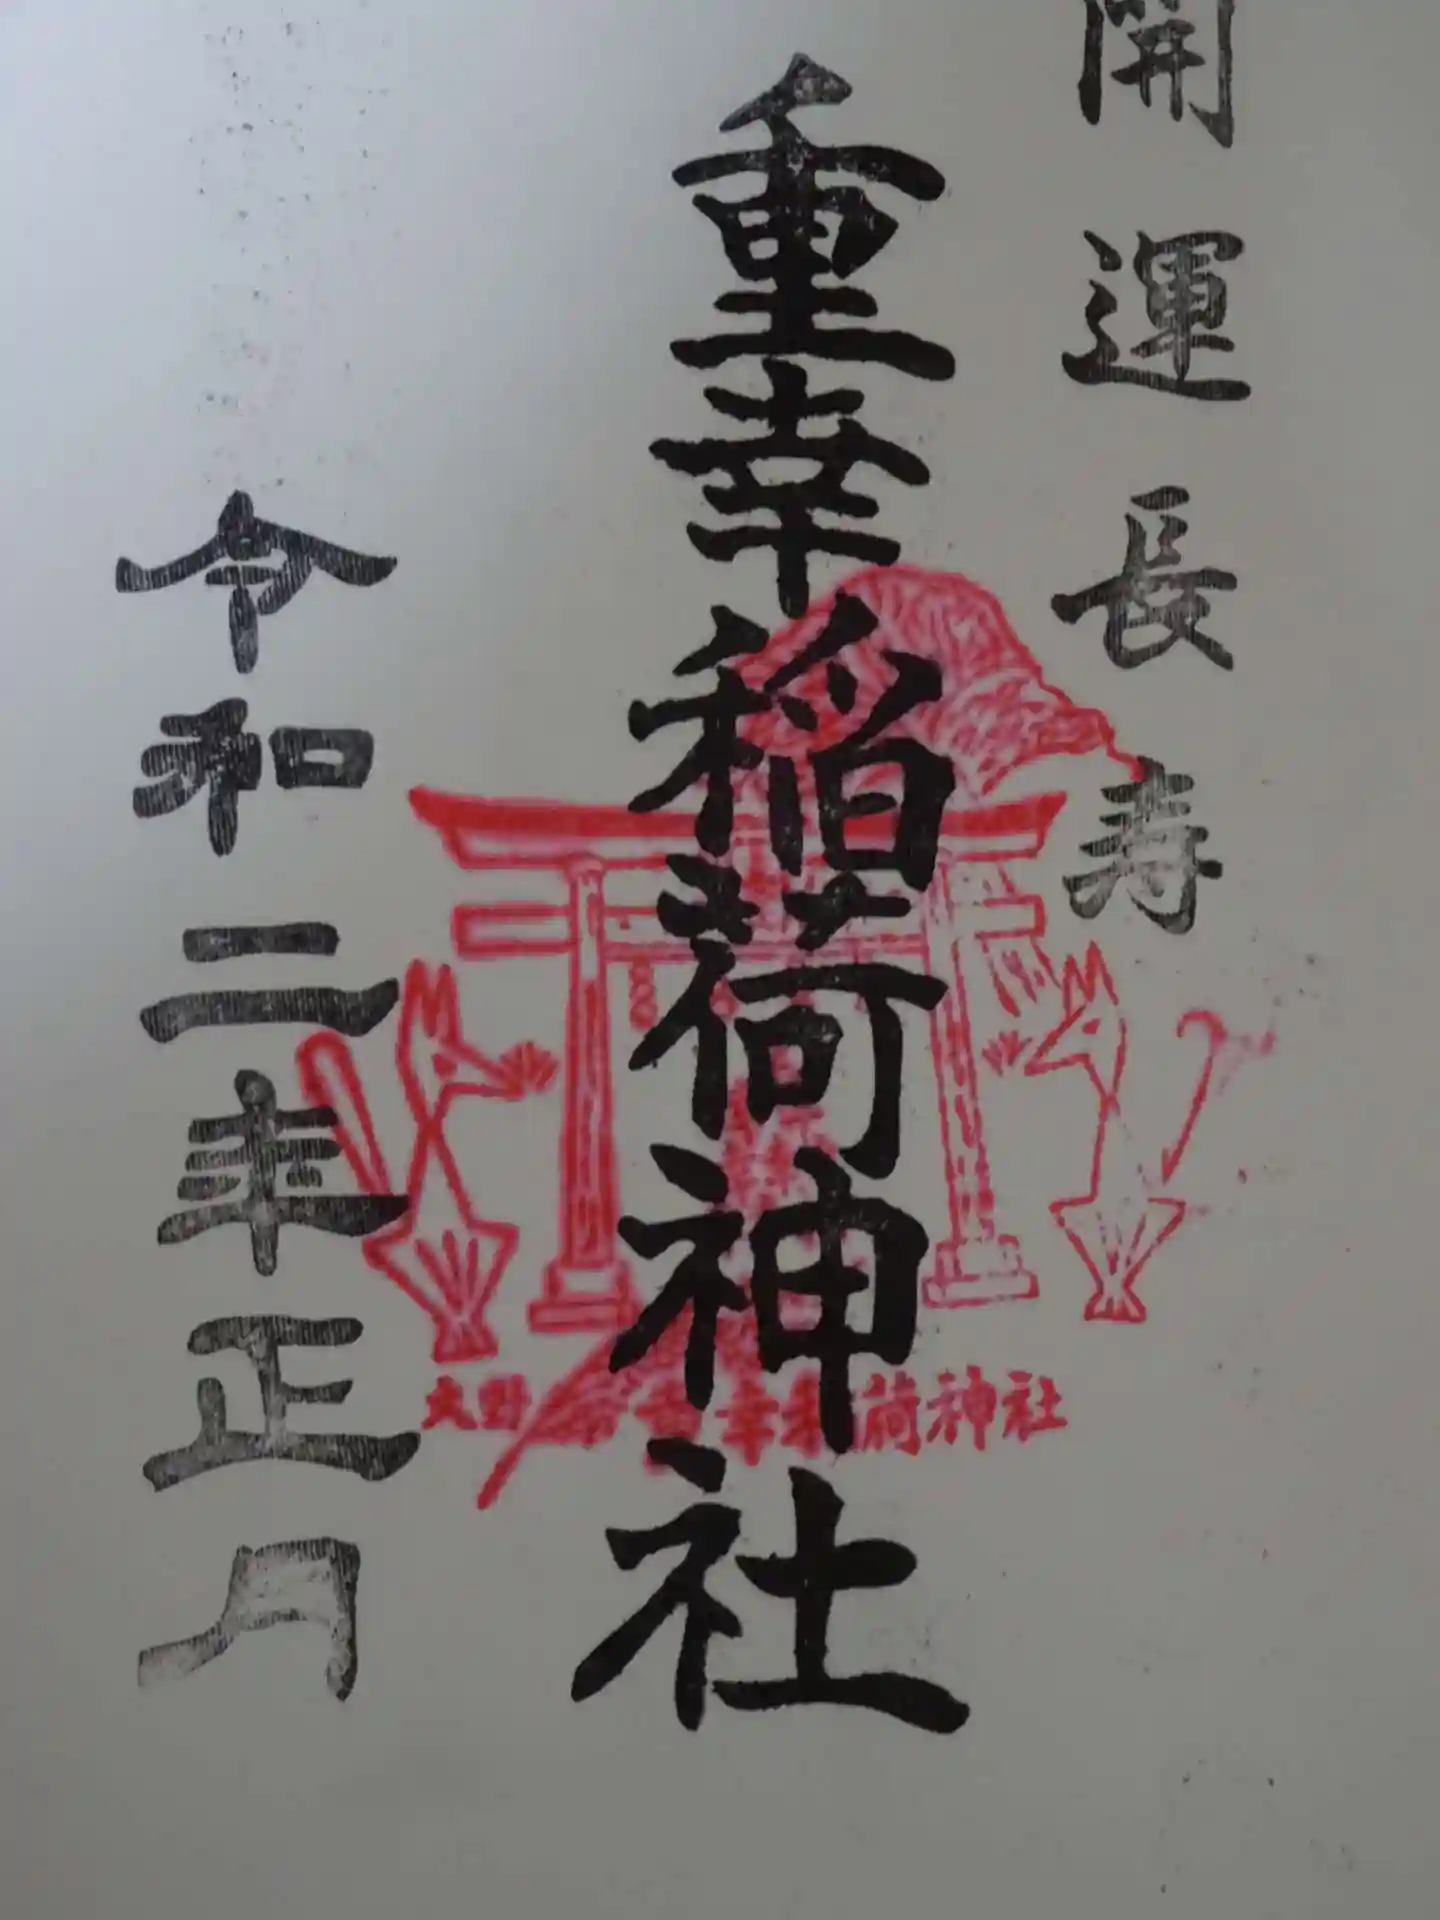 開運長寿
重幸稲荷神社
大野 重幸稲荷神社
令和二年正月